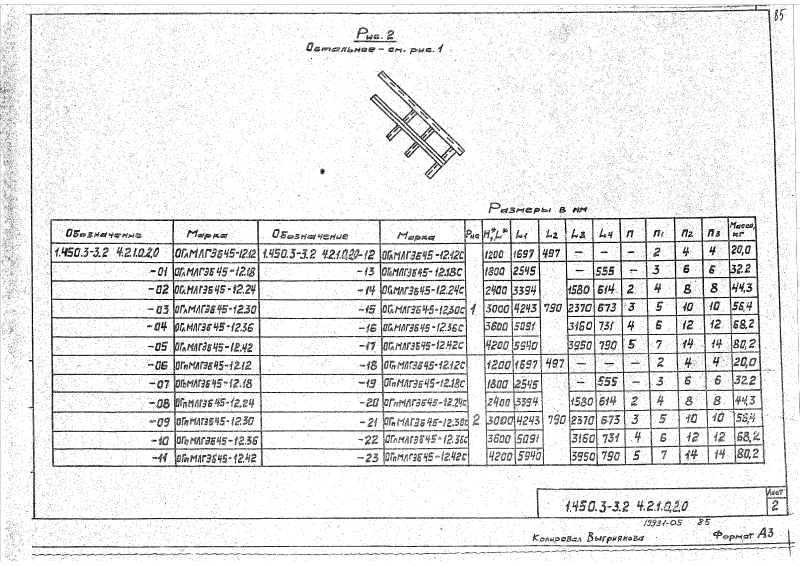 85
Рис. 2
Остальное - см. рис. 1
Размеры в мм
Обозначение Марка Обозначение Марка Рис H*, L* L1 L2 L3 L4 n n1 n2 n3 Масса, кг
1.450.3-3.2 4.2.1.0.2.0 ОГлМЛГЭБ45-12.12 1.450.3-3.2 4.2.1.0.2.0-12 ОГлМЛГЭБ45-12.12С 1200 1697 497 – – – 2 4 4 20,0
-01 ОГлМЛГЭБ45-12.18 -13 ОГлМЛГЭБ45-12.18С 1800 2545 – 555 – 3 6 6 32.2
-02 ОГлМЛГЭБ45-12.24 -14 ОГлМЛГЭБ45-12.24С 2400 3394 1580 614 2 4 8 8 44,3
-03 ОГлМЛГЭБ45-12.30 -15 ОГлМЛГЭБ45-12.30С 1 3000 4243 790 2370 673 3 5 10 10 56,4
-04 ОГлМЛГЭБ45-12.36 -16 ОГлМЛГЭБ45-12.36С 3600 5091 3160 731 4 6 12 12 68,2
-05 ОГлМЛГЭБ45-12.42 -17 ОГлМЛГЭБ45-12.42С 4200 5940 3950 790 5 7 14 14 80,2
-06 ОГпМЛГЭБ45-12.12 -18 ОГпМЛГЭБ45-12.12С 1200 1697 497 – – – 2 4 4 20,0
-07 ОГпМЛГЭБ45-12.18 -19 ОГпМЛГЭБ45-12.18С 1800 2545 – 555 – 3 6 6 32.2
-08 ОГпМЛГЭБ45-12.24 -20 ОГпМЛГЭБ45-12.24С 2400 3394 1580 614 2 4 8 8 44,3
-09 ОГпМЛГЭБ45-12.30 -21 ОГпМЛГЭБ45-12.30С 2 3000 4243 790 2370 673 3 5 10 10 56,4
-10 ОГпМЛГЭБ45-12.36 -22 ОГпМЛГЭБ45-12.36С 3600 5091 3160 731 4 6 12 12 68,2
-11 ОГпМЛГЭБ45-12.42 -23 ОГпМЛГЭБ45-12.42С 4200 5940 3950 790 5 7 14 14 80,2
1.450.3-3.2 4.2.1.0.2.0
Лист
2
19931-05 85
Копировал Выгриянова Формат А3